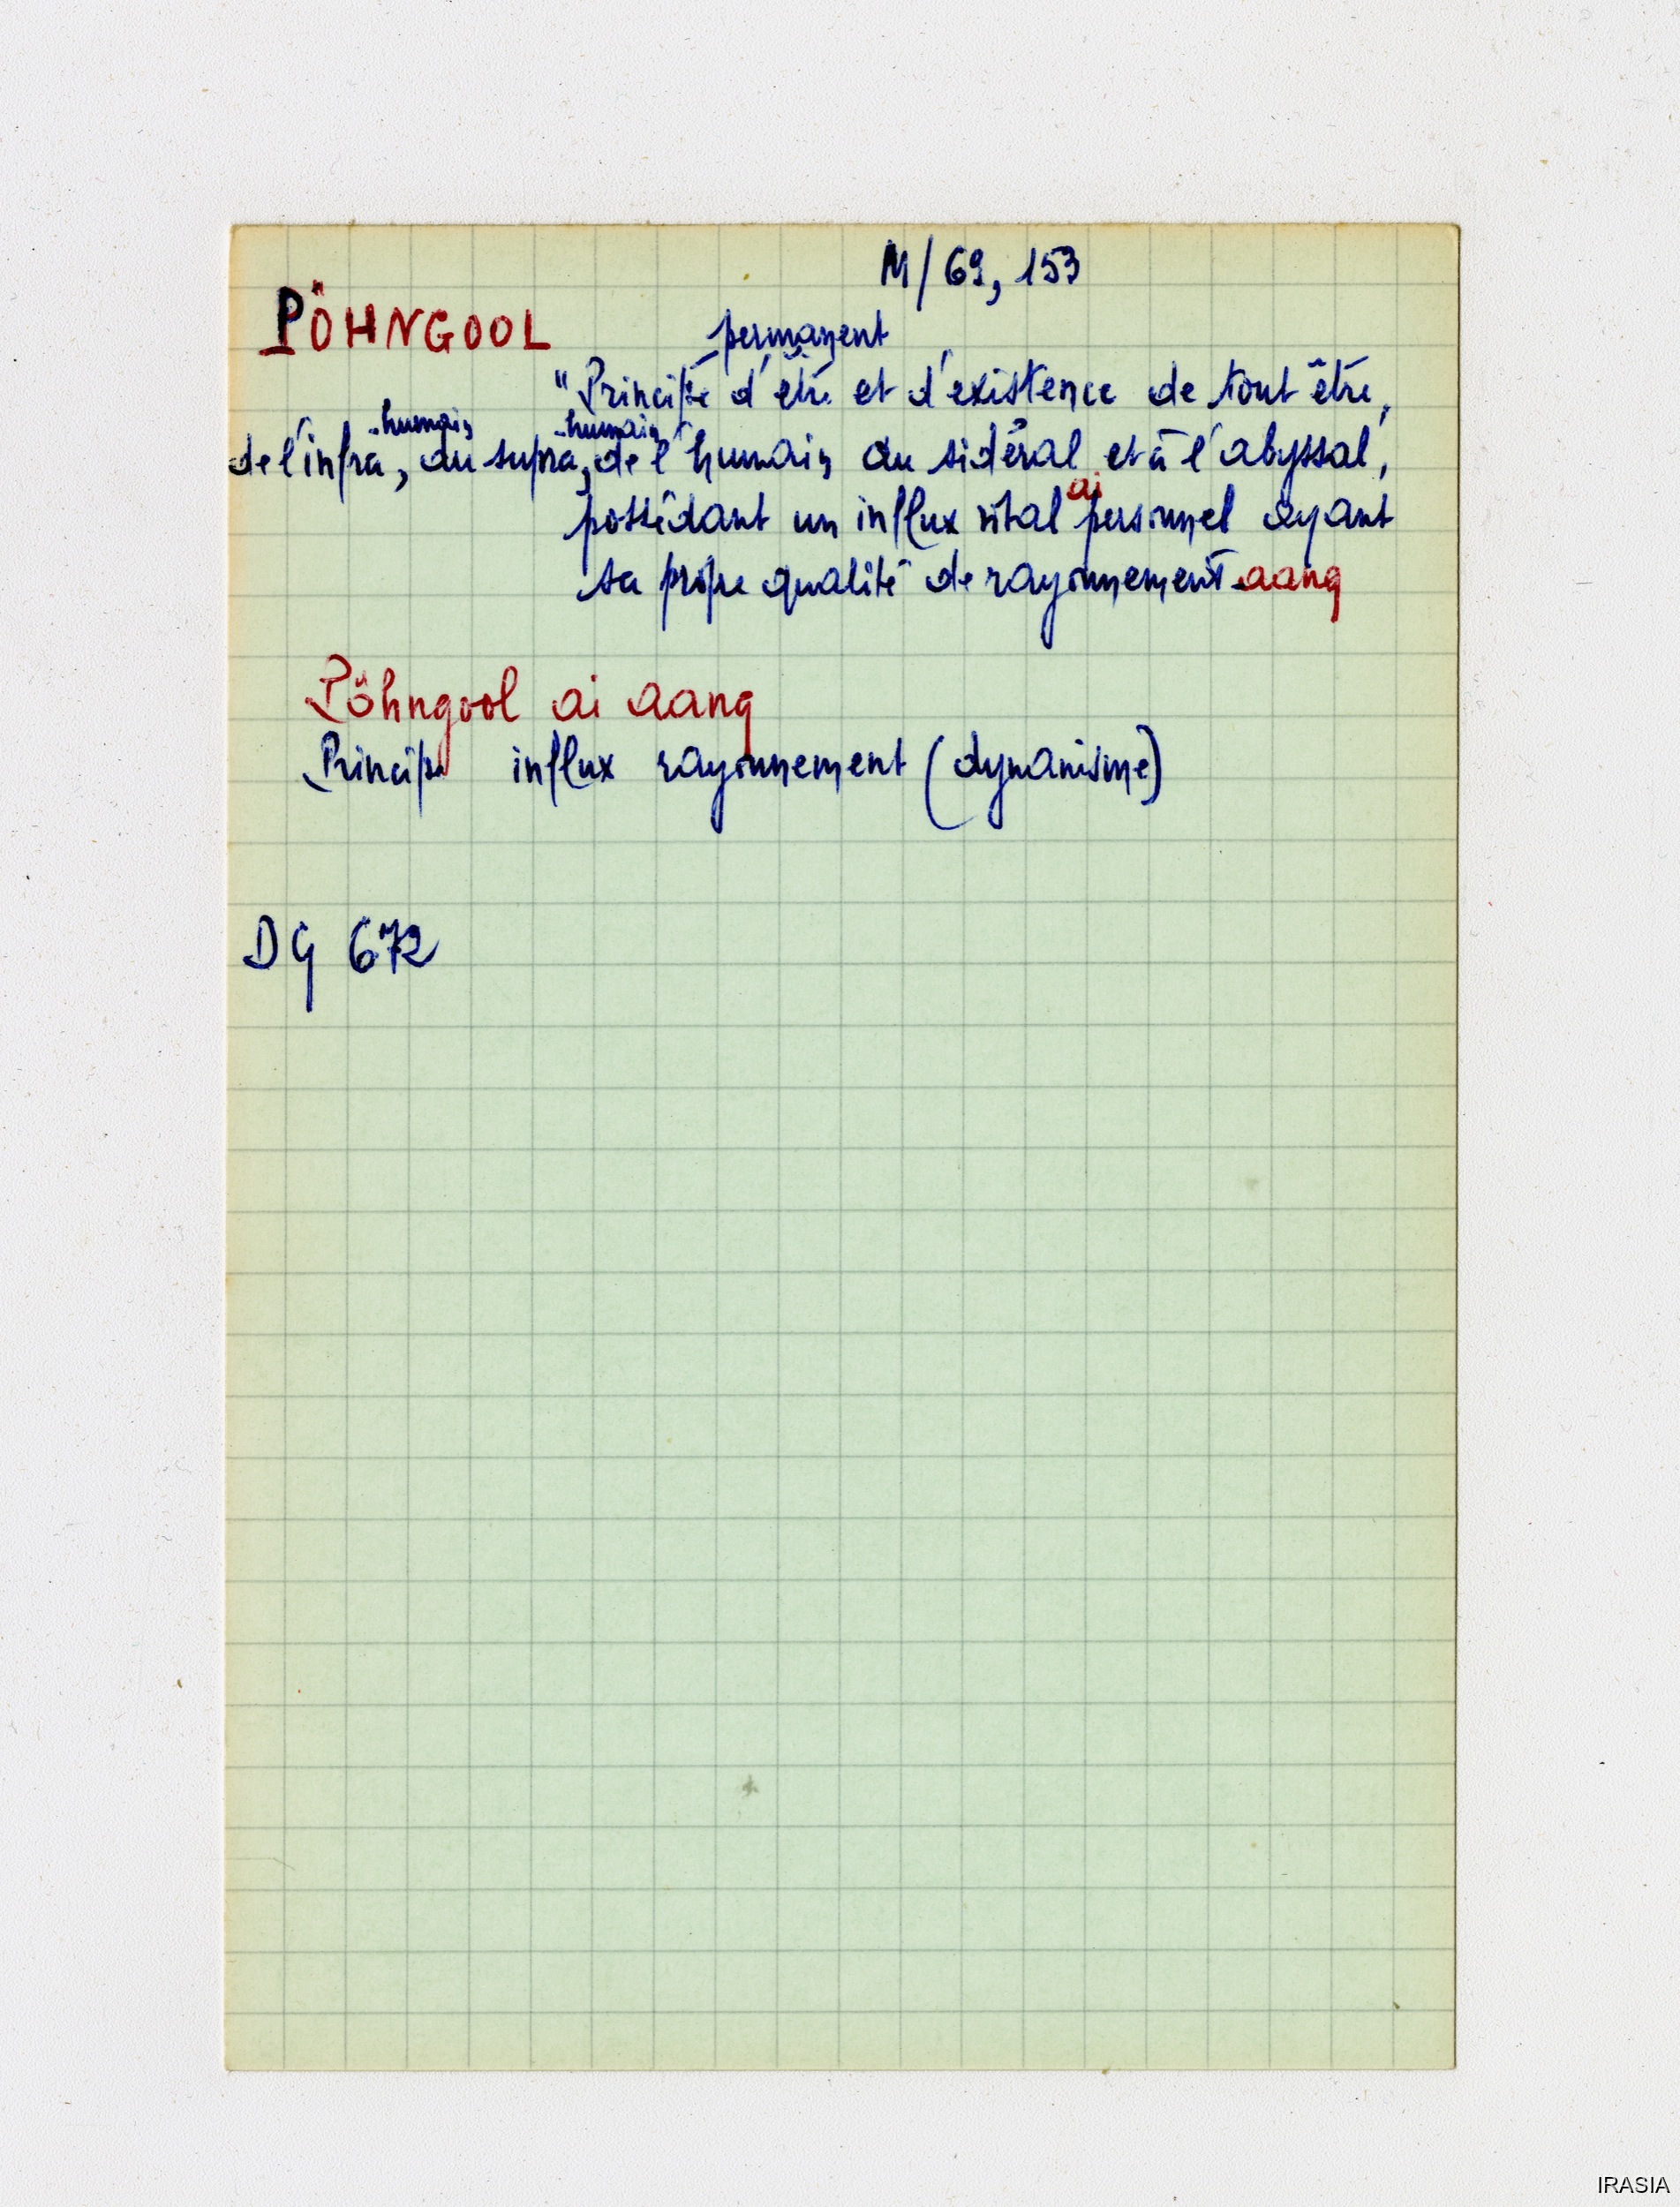 M/69, 153
PÖHNGOOL
permanent
"Principe d'être et d'existence de tout être,
-humain -humain
de l'infra, du supra, de l'humain du sidéral et à l'abyssal,
ai
possédant un influx vital personnel ayant
sa propre qualité de rayonnement-aang
Pöhngool ai aang
Principe influx rayonnement (dynamisme)
DG 672
IRASIA